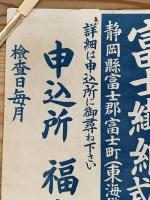 富士纖紙式
静岡縣富士郡富士町(東海道
詳細は申込所に御尋ね下さい
申込所 福
檢査日毎月